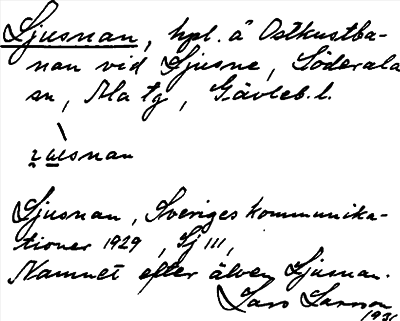 Ljusnan, hpl. å Ostkustba-
nan vid Ljusne, Söderala
sn, Ala tg, Gävleb. l.
Ljusnan, Sveriges kommunika-
tioner 1929, Sj 111,
Namnet efter älven Ljusnan.
Lars Larsson